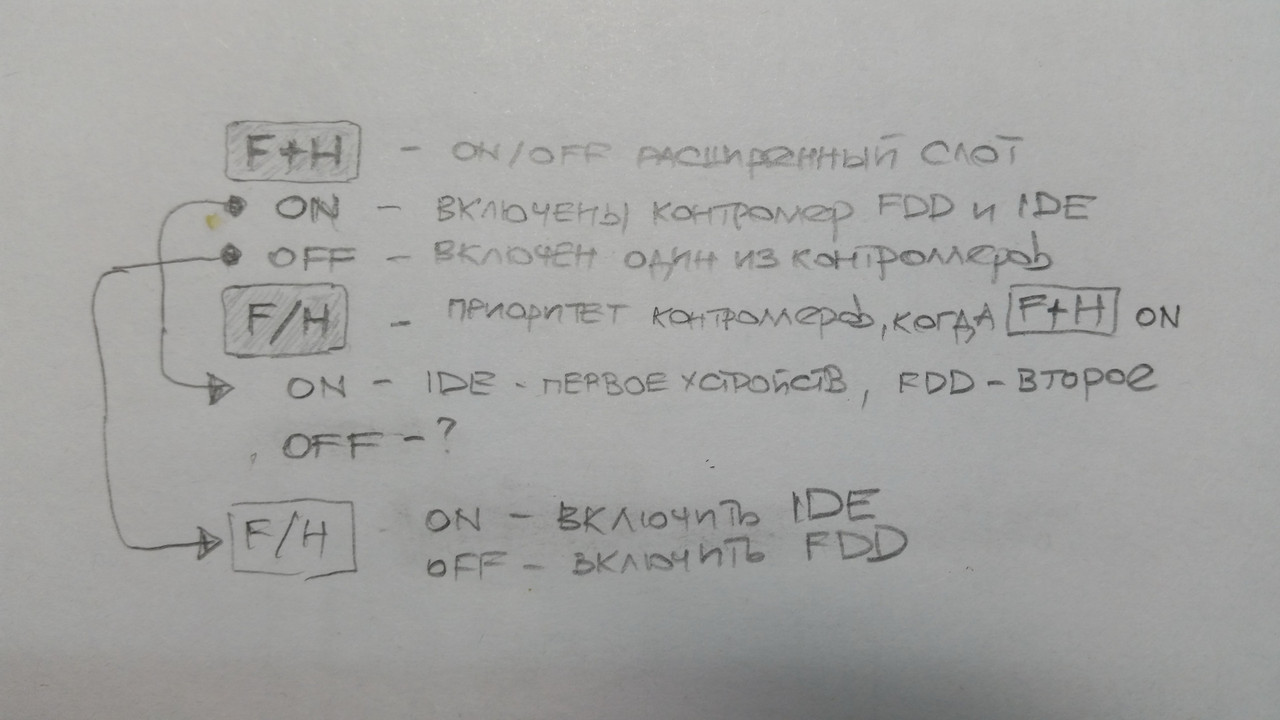 F+H - ON/OFF РАСШИРЕННЫЙ СЛОТ
ON - ВКЛЮЧЕНЫ КОНТРОЛЛЕР FDD И IDE
OFF - ВКЛЮЧЕН ОДИН ИЗ КОНТРОЛЛЕРОВ
F/H - ПРИОРИТЕТ КОНТРОЛЛЕРОВ, КОГДА F+H ON
ON - IDE - ПЕРВОЕ УСТРОЙСТВ, FDD - ВТОРОЕ
OFF - ?
F/H ON - ВКЛЮЧИТЬ IDE
OFF - ВКЛЮЧИТЬ FDD